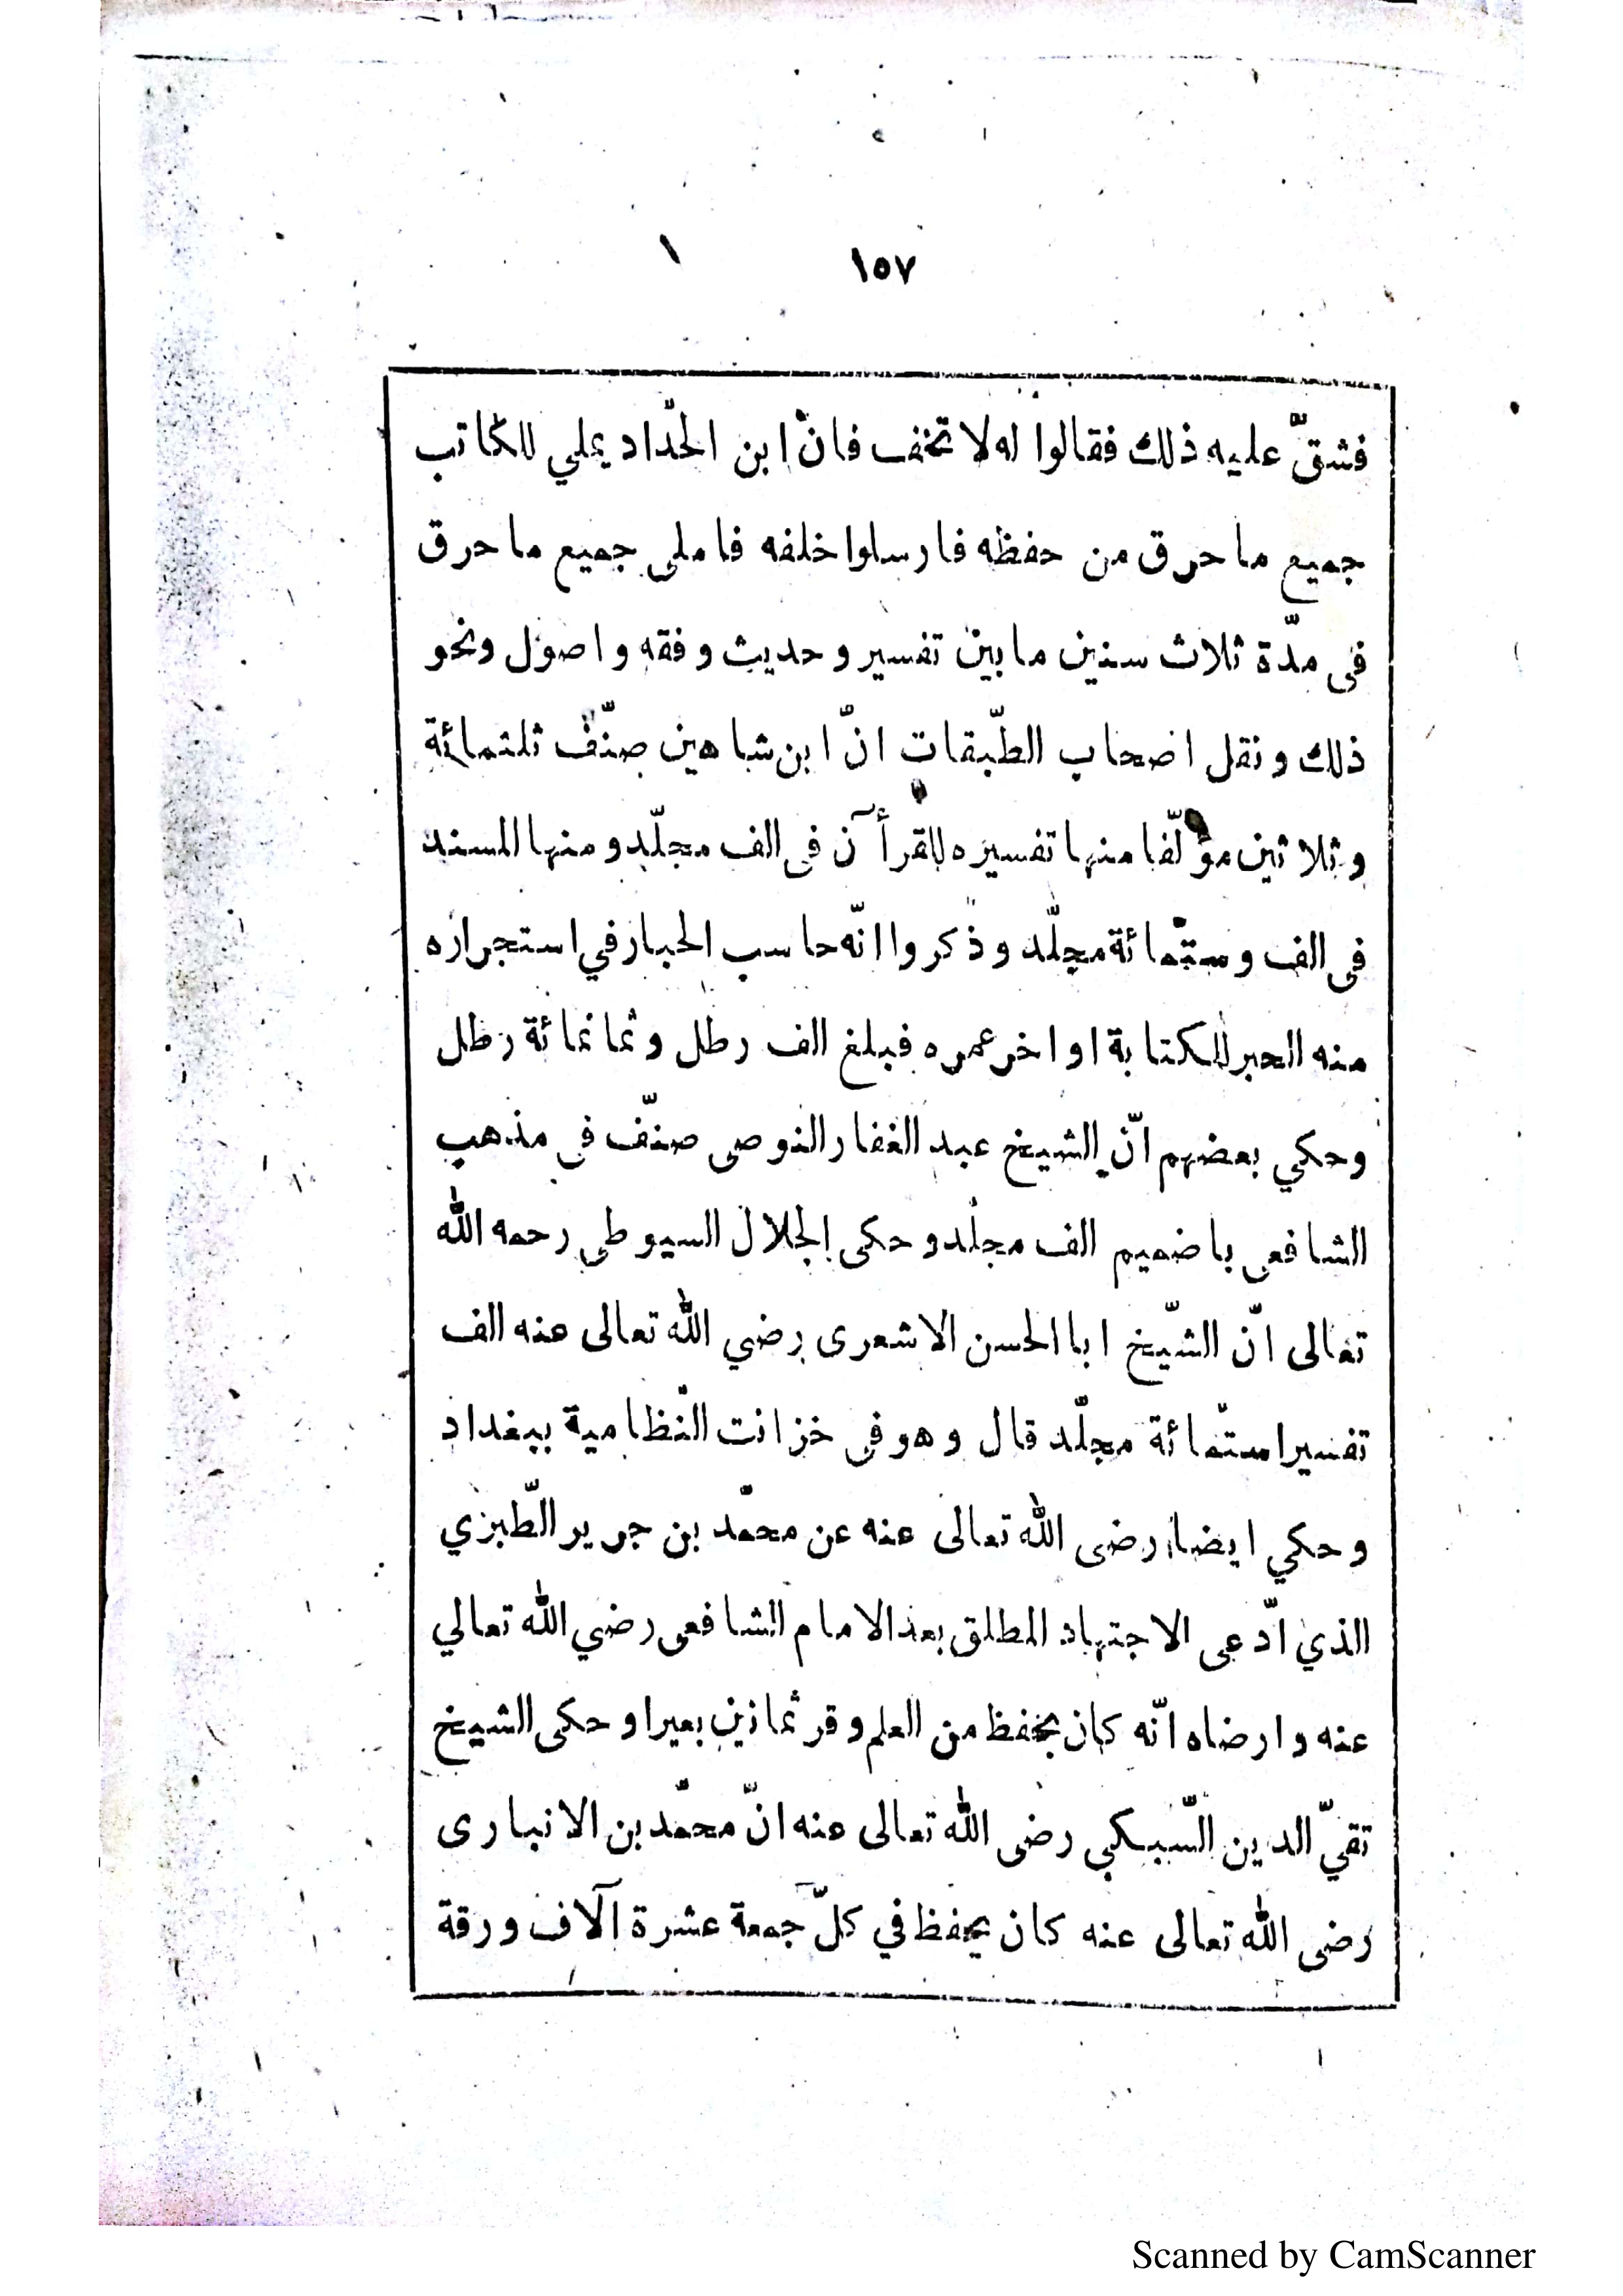 ١٥٧
فشقّ عليه ذلك فقالوا له لا تخف فانّ ابن الحّداد يملي للكاتب
جميع ما حرق من حفظه فارسلوا خلفه فاملى جميع ما حرق
فى مدّة ثلاث سنين ما بين تفسير وحديث وفقه واصول ونحو
ذلك ونقل اضحاب الطّبقات انّ ابن شاهين صنّف ثلثمائة
وثلاثين مؤلّفا منها تفسيره للقرأآن فى الف مجلّد ومنها المسند
فى الف وستّمائة مجلّد وذكروا انّه حاسب الحبار في استجراره
منه الحبر للكتابة اواخر عمره فبلغ الف رطل وثمانمائة رطل
وحكي بعضهم انّ الشيخ عبد الغفار النوصى صنّف فى مذهب
الشافعى باضميم الف مجلد وحكى الجلال السيوطى رحمه الله
تعالى انّ الشّيخ ابا الحسن الاشعرى رضي الله تعالى عنه الف
تفسيرا ستّمائة مجلّد قال وهو فى خزانت النّظامية ببغداد
وحكي ايضا رضى الله تعالى عنه عن محمّد بن جرير الطّبرى
الذي ادّعى الاجتهاد المطلق بعد الامام الشافعى رضي الله تعالي
عنه وارضاه انّه كان يحفظ من العلم وقر ثمانين بعيرا وحكى الشيخ
تقيّ الدين السّبكي رضى الله تعالى عنه انّ محمّد بن الانبارى
رضى الله تعالى عنه كان يحفظ في كلّ جمعة عشرة آلاف ورقة
Scanned by CamScanner